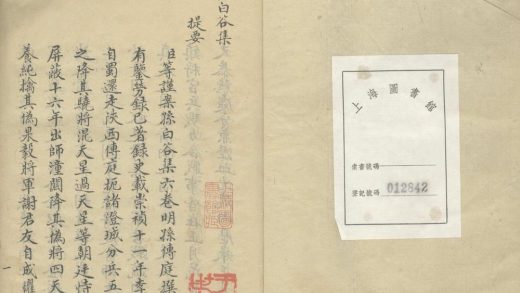 上海圖書館
索書號碼
登記號碼 012842
白谷集
提要
臣等謹案孫白谷集六卷明孫傳庭撰
有鑒勞錄已著錄史載崇禎十一年李
自蜀還走陝西傳庭扼諸澄城分兵五
之降其驍將混天星過天星等朝廷恃
屏蔽十六年出師潼關降其偽將四天
養純擒其偽果毅將軍謝君友自成懼
一